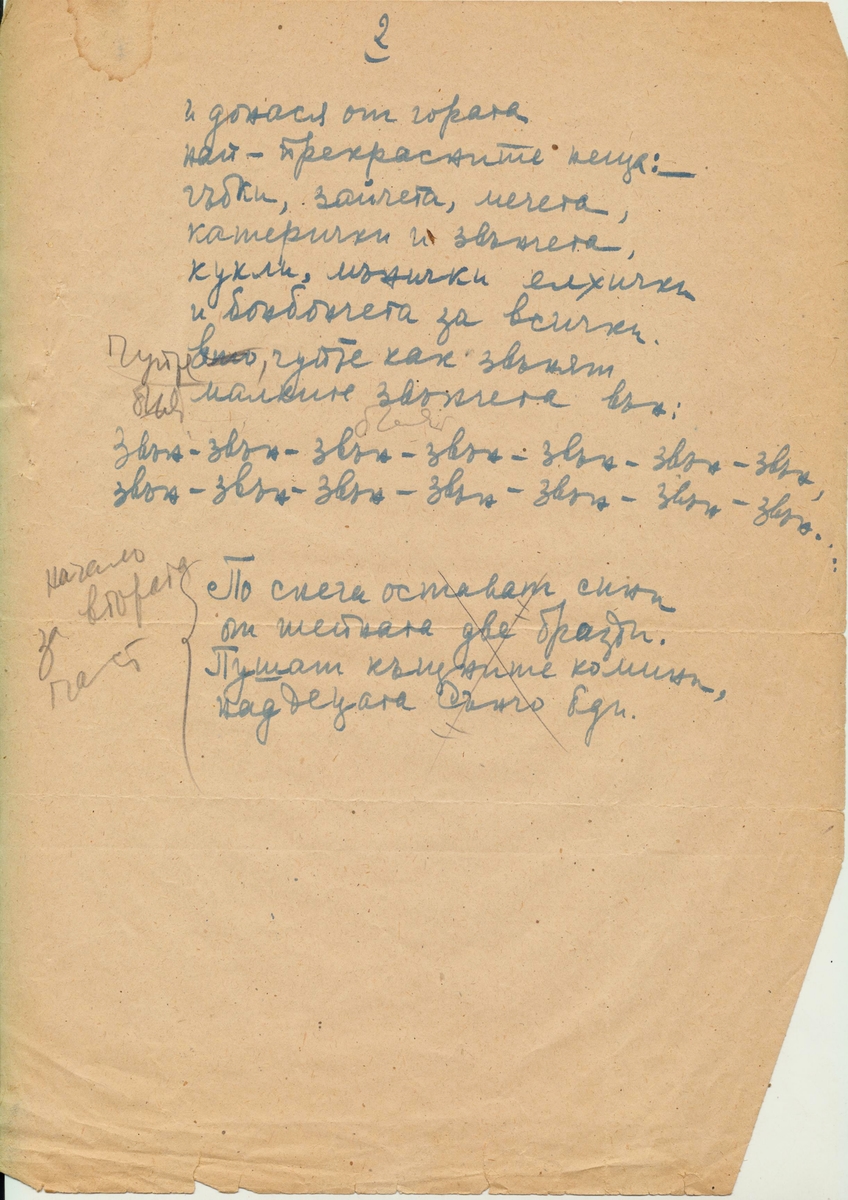 2
и донася от гората
най-прекрасните неща:—
гъбки, зайчета, мечета,
катерички и звънчета,
кукли, мънички елхички
и бонбончета за всички.
Чуйте, чуйте как звънят
малките звънчета вън:
Звън-звън-звън-звън-звън-звън-звън,
звън-звън-звън-звън-звън-звън-звън...
начало
за втората
част
По снега остават сини
от шейната две бразди.
Пушат къщните комини,
над децата Сънчо бди.